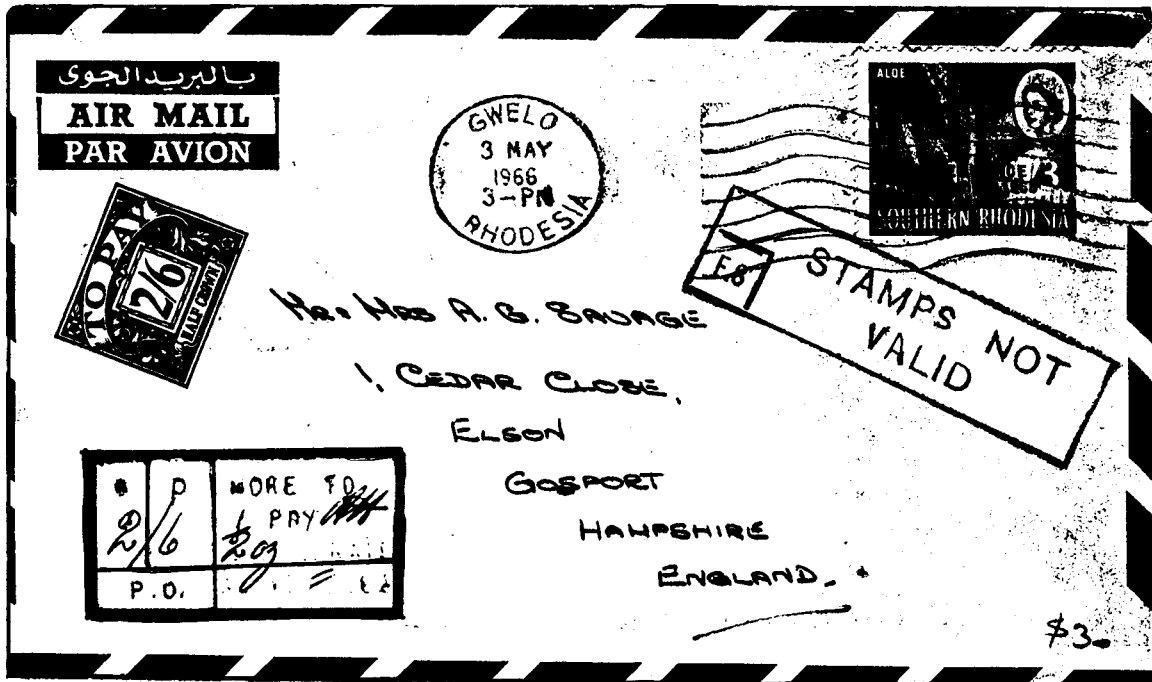 بالبريد الجوى
AIR MAIL
PAR AVION
GWELO
3 MAY
1966
3-PM
RHODESIA
ALOE
1/3
SOUTHERN RHODESIA
TO PAY
2/6
HALF CROWN
F.8
STAMPS NOT
VALID
Mr & Mrs A. G. SAVAGE
1, CEDAR CLOSE,
ELSON
GOSPORT
HAMPSHIRE
ENGLAND.
D
MORE TO
PAY
2/6
½ oz
P.O.
$3